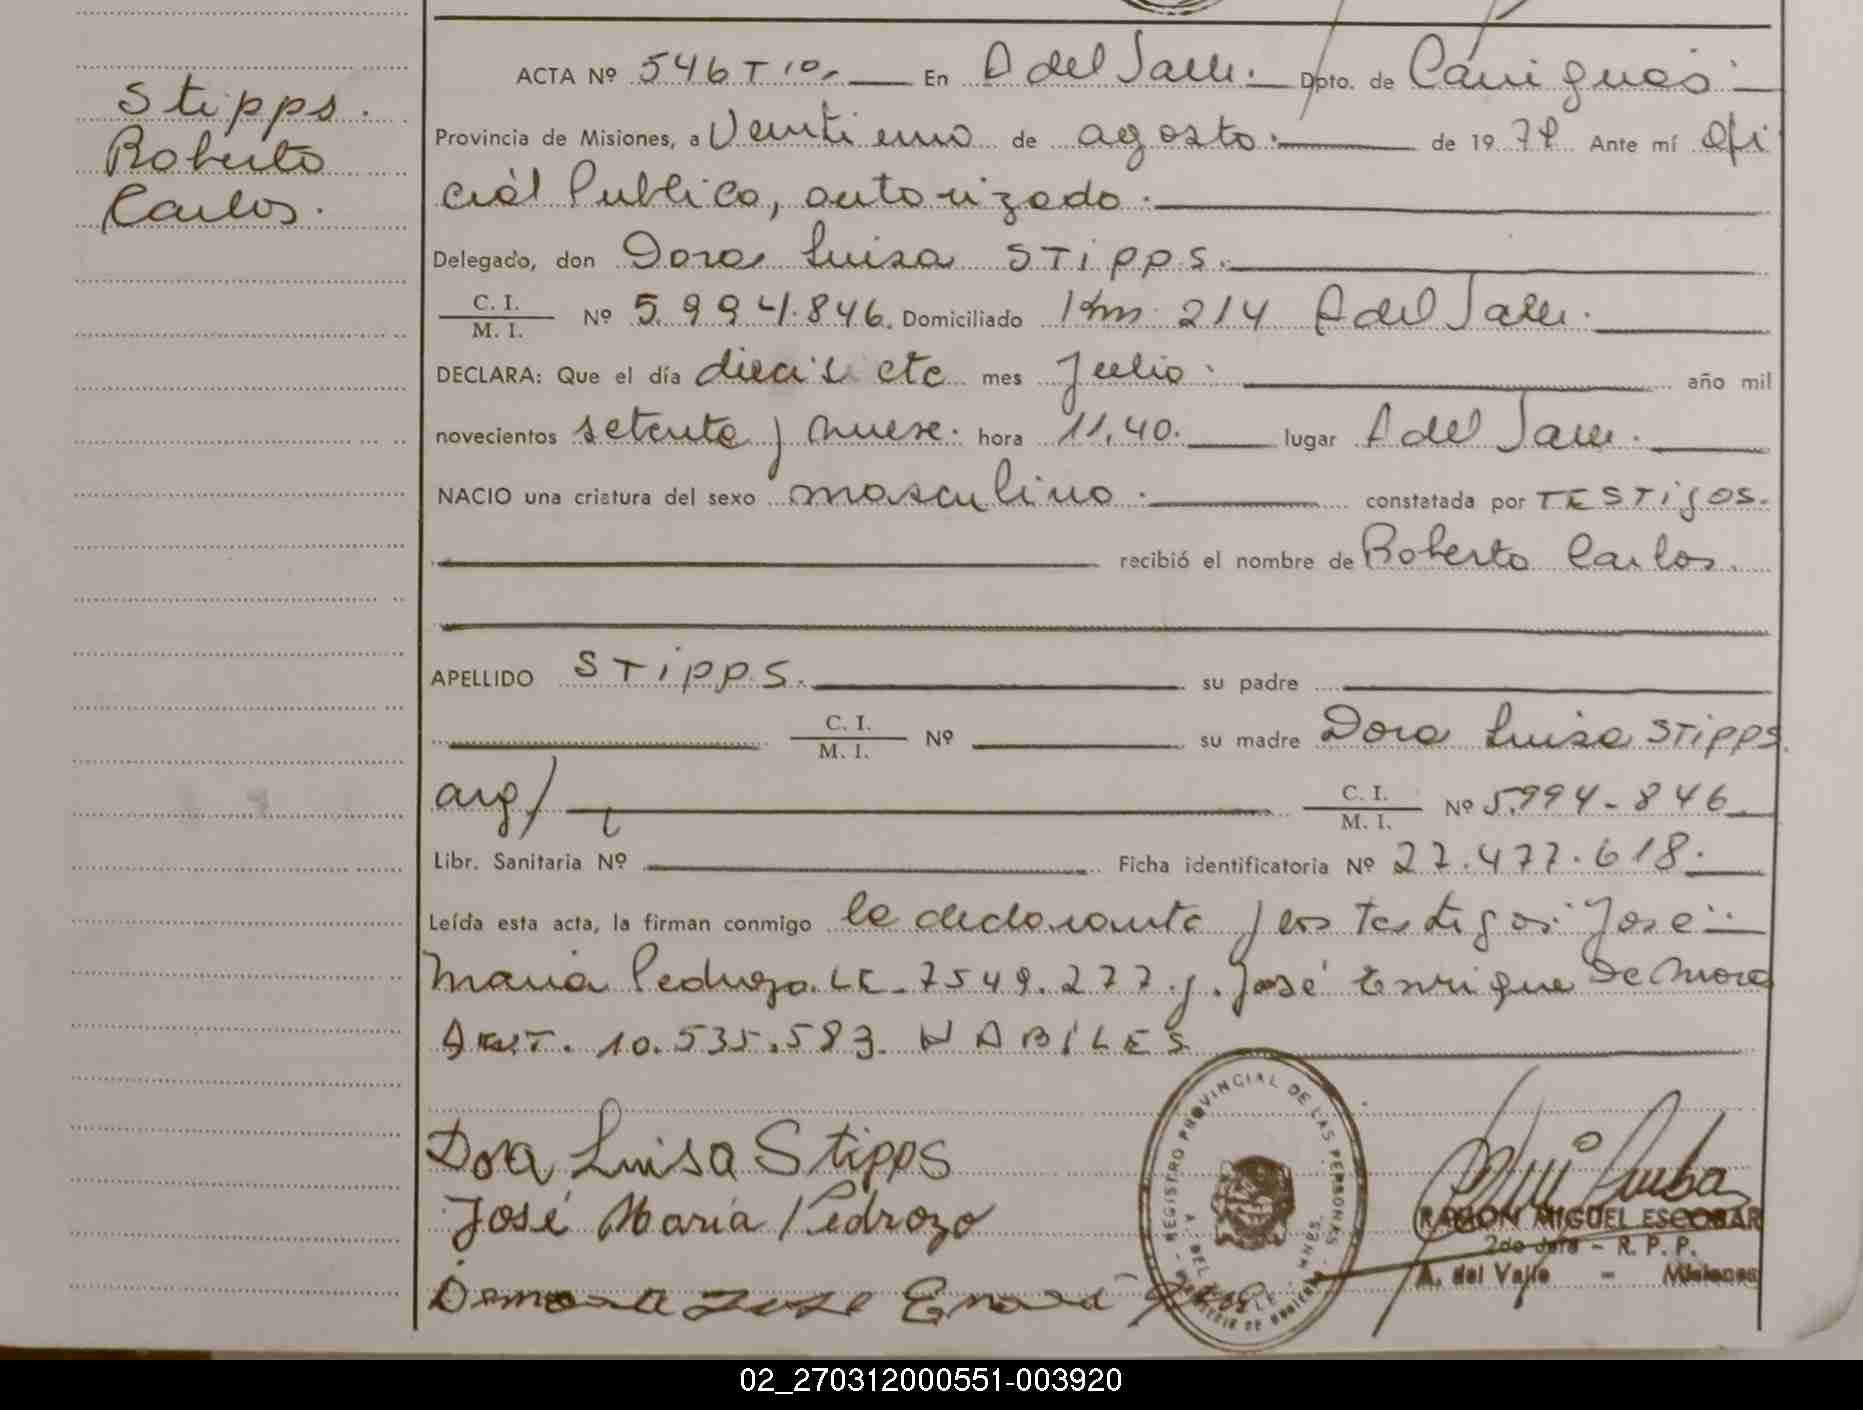 Stipps.
Roberto
Carlos.
ACTA Nº 546 T 10. En A del Valle. Dpto. de Cainguas
Provincia de Misiones, a Veintiuno de agosto. de 1979 Ante mí Ofi
cial Publico, autorizado.
Delegado, don Dora Luisa STipps.
C. I.
M. I. Nº 5.994.846. Domiciliado Km 214 A del Valle.
DECLARA: Que el día diecisiete mes Julio. año mil
novecientos setenta y nueve. hora 11,40. lugar A del Valle.
NACIO una criatura del sexo masculino. constatada por TESTigos.
recibió el nombre de Roberto Carlos.
APELLIDO STipps. su padre
C. I.
M. I. Nº su madre Dora Luisa STipps.
arg/ C. I.
M. I. Nº 5.994-846
Libr. Sanitaria Nº Ficha identificatoria Nº 27.477.618.
Leída esta acta, la firman conmigo la declarante y los testigos José
Maria Pedrozo. LE-7549.277.y. José Enrique De Mora
10.535.583. HABILES
Dora Luisa Stipps
José María Pedrozo
REGISTRO PROVINCIAL DE LAS PERSONAS
A. DEL VALLE - MNES.
RAMON MIGUEL ESCOBAR
2do Jefe - R. P. P.
A. del Valle - Misiones
02_270312000551-003920